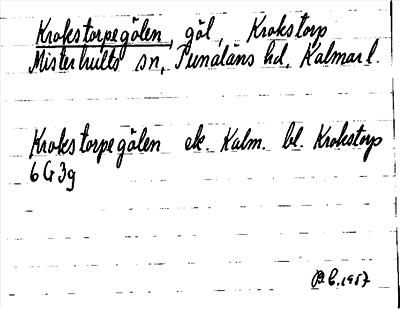 Krokstorpegölen, göl, Krokstorp
Misterhults sn, Tunaläns hd, Kalmar l.
Krokstorpegölen ek. Kalm. bl. Krokstorp
6 G 3g
1957